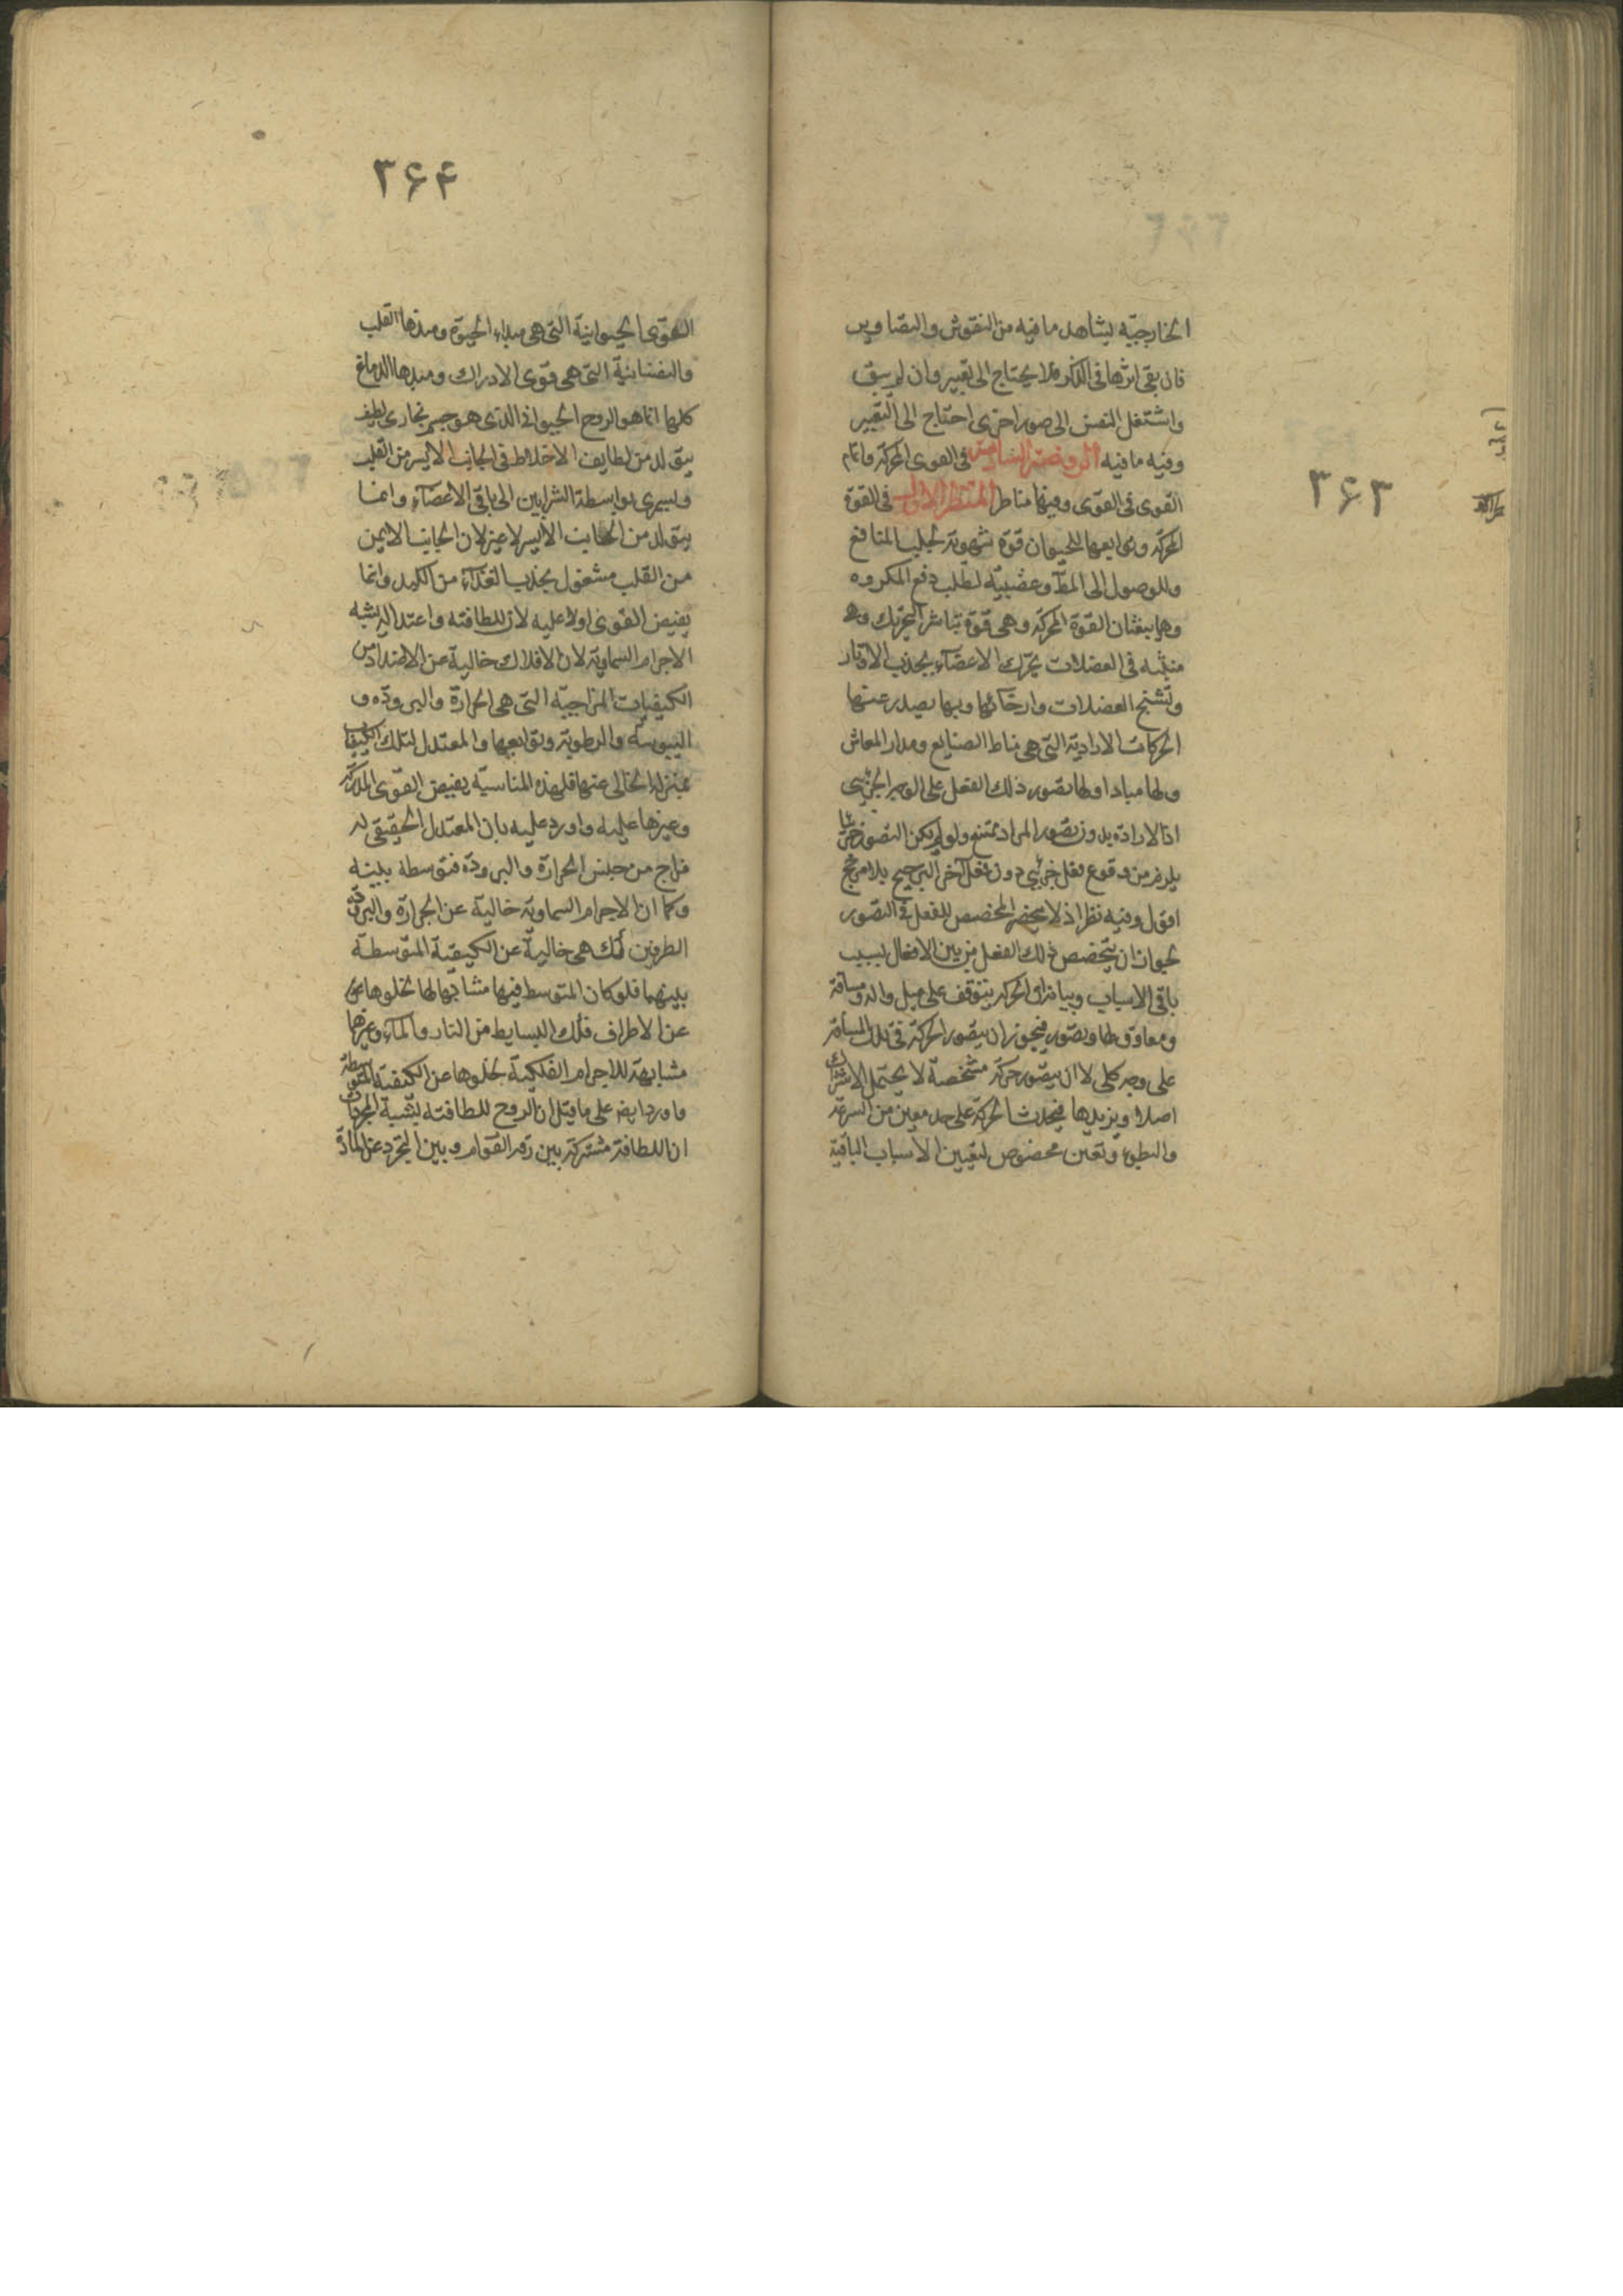 ۳۶۳
الخارجیّه لیشاهد ما فیه من النقوش والتصاویر
فان بقی اثرها فی الذکر فلا یحتاج الی تعبیر وان لم یبق
واشتغل النفس الی صور اخری احتاج الی التعبیر
وفیه ما فیه الروضة السادسة فی القوی المحرکة واتمام
القوی فی القوی وفیها مناظر المنظر الاول فی القوة
المحرکة وتوابعها للحیوان قوة شهویة لجلب المنافع
وللوصول الی الملذ وغضبیّه لطلب دفع المکروه
وهما یبعثان القوة المحرکة وهی قوة تباشر التحریک وهی
منبثه فی العضلات یحرک الاعضآء بجذب الاوتار
وتشنج العضلات وارخائها وبها یصدر عنها
الحرکات الارادیة التی هی مناط الصنایع ومدار المعاش
ولها مباد اولها تصور ذلک الفعل علی الوجه الجزئی
اذ الارادة بدون تصور المراد ممتنع ولو لم یکن التصور جزئیا
یلزم من وقوع فعل جزئی دون فعل آخر الترجیح بلا مرجح
اقول وفیه نظر اذ لا ینحصر المخصص للفعل فی التصور
لجواز ان یتخصص ذلک الفعل من بین الافعال بسبب
باقی الاسباب وبیانه ان الحرکة یتوقف علی میل وآلة ومسافة
ومعاوق لها وتصور فیجوز ان یتصور الحرکة فی تلک المسافة
علی وجه کلی لا ان یتصور حرکة مشخصة لا یحتمل الاشتراک
اصلا ویریدها فیحدث الحرکة علی حد معین من السرعة
والبطوء وتعین مخصوص لتعیین الاسباب الباقیة
۳۶۴
القوی الحیوانیة التی هی مبداء الحیوة ومبدؤها القلب
والنفسانیة التی هی قوی الادراک ومبدها الدماغ
کلها انما هو الروح الحیوانی الذی هو جسم بخاری لطیف
یتولد من لطایف الاخلاط فی الجانب الایسر من القلب
ویسری بواسطة الشرایین الی باقی الاعضآء وانما
یتولد من الجانب الایسر لا غیر لان الجانب الایمن
من القلب مشغول بجذب الغذآء من الکبد وانما
یفیض القوی اولا علیه لان للطافته واعتداله یشبه
الاجرام السماویة لان الافلاک خالیة عن الاضداد من
الکیفیات المزاجیّه التی هی الحرارة والبرودة و
الیبوسة والرطوبة وتوابعها والمعتدل لتلک الکیفیات
بمنزلة الخالی عنها فلهذه المناسبة یفیض القوی المدرکة
وغیرها علیه واورد علیه بان المعتدل الحقیقی له
مزاج من جنس الحرارة والبرودة متوسطة بینه
وکما ان الاجرام السماویة خالیة عن الحرارة والبرودة
الطرفین کک هی خالیة عن الکیفیة المتوسطة
بینهما فلو کان المتوسط فیها مشابها لها لخلوها عن
عن الاطراف فکک البسایط من النار والمآء وغیرها
مشابهة للاجرام الفلکیة لخلوها عن الکیفیة المتوسطة
واورد ایض علی ما قیل ان الروح للطافته یشبه المجردات
ان اللطافة مشترکة بین رقة القوام وبین التجرد عن المادة